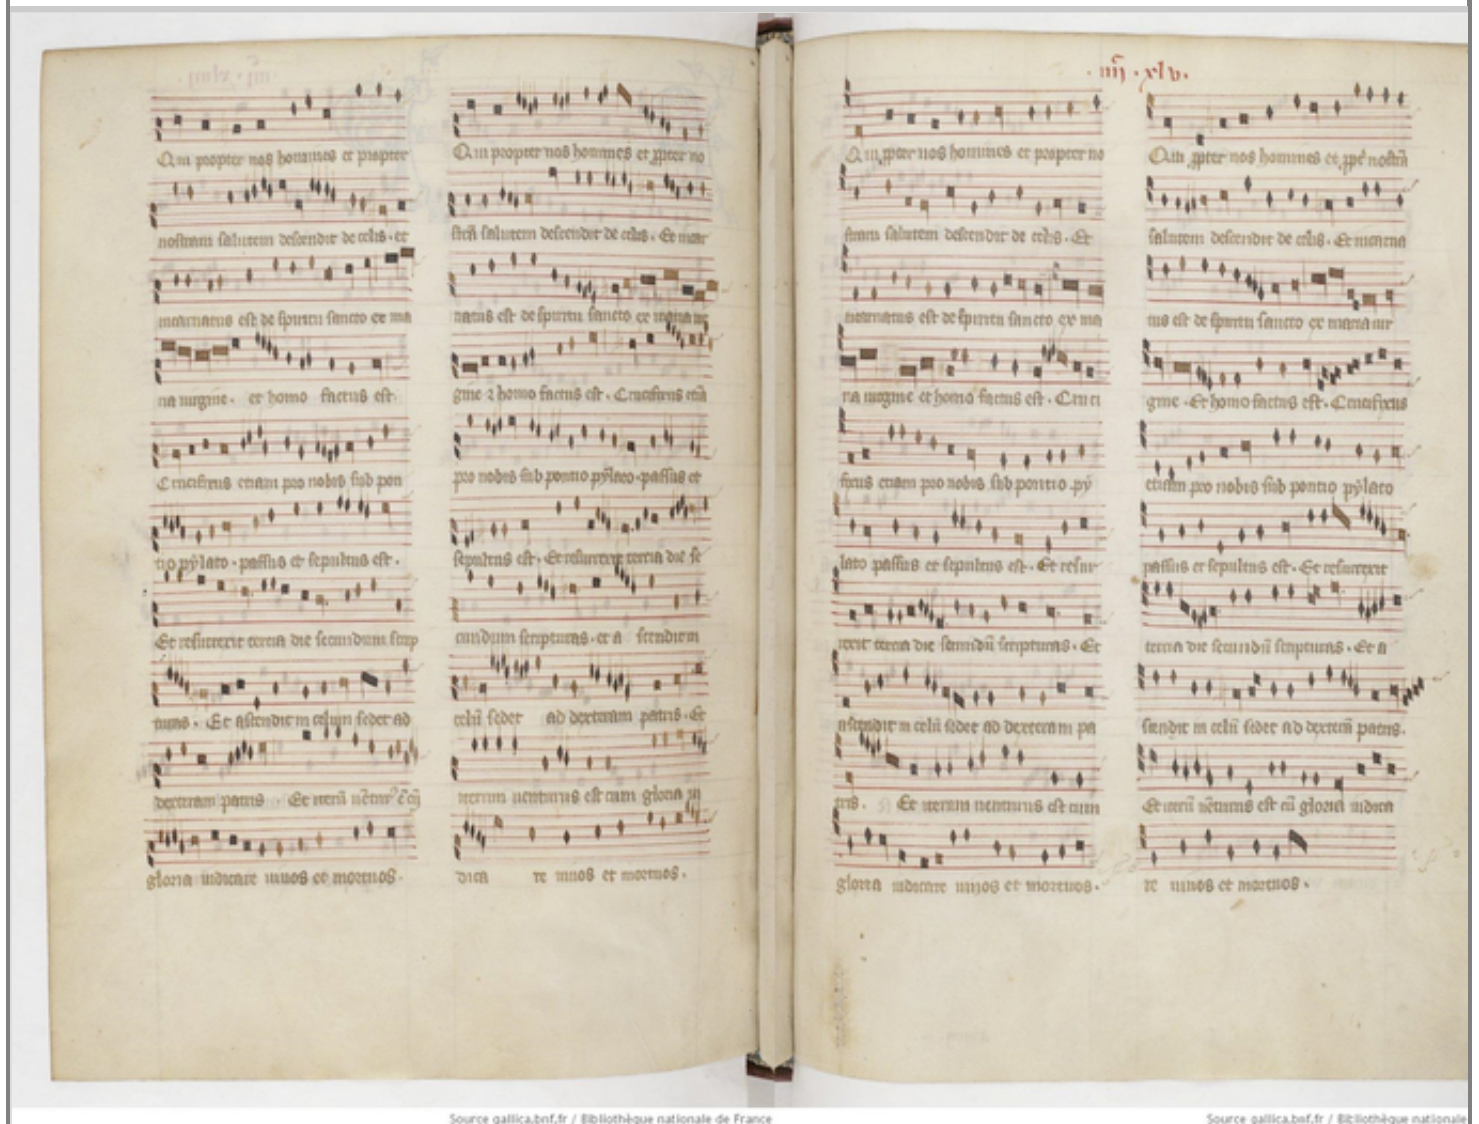 . iiij . xlv .
Qui propter nos homines et propter
nostram salutem descendit de celis . et
incarnatus est de spiritu sancto ex ma
ria virgine . et homo factus est .
Crucifixus etiam pro nobis sub pon
tio pylato . passus et sepultus est .
Et resurrexit tercia die secundum scrip
turas . Et ascendit in celum sedet ad
dexteram patris Et iterū
gloria iudicare vivos et mortuos .
Qui propter nos homines et no
salutem descendit de celis . Et incar
natus est de spiritu sancto ex maria vir
gine homo factus est . Crucifixus
pro nobis sub pontio pylato . passus et
sepultus est . Et resurrexit tercia die se
cundum scripturas . et a scendit in
celū sedet ad dexteram patris . Et
iterum venturus est cum gloria iu
dica re vivos et mortuos .
Qui nos homines et propter no
stram salutem descendit de celis . Et
incarnatus est de spiritu sancto ex ma
ria virgine et homo factus est . Cruci
fixus etiam pro nobis sub pontio py
lato passus et sepultus est . Et resur
rexit tercia die secundū scripturas . Et
ascendit in celū sedet ad dexteram pa
tris . Et iterum venturus est cum
gloria iudicare vivos et mortuos .
Qui nos homines et
salutem descendit de celis . Et incarna
tus est de spiritu sancto ex maria vir
gine . Et homo factus est . Crucifixus
etiam pro nobis sub pontio pylato
passus et sepultus est . Et resurrexit
tercia die secundū scripturas . Et a
scendit in celū sedet ad dexterā patris .
Et iterū est cū gloria iudica
re vivos et mortuos .
Source gallica.bnf.fr / Bibliothèque nationale de France
Source gallica.bnf.fr / Bibliothèque nationale